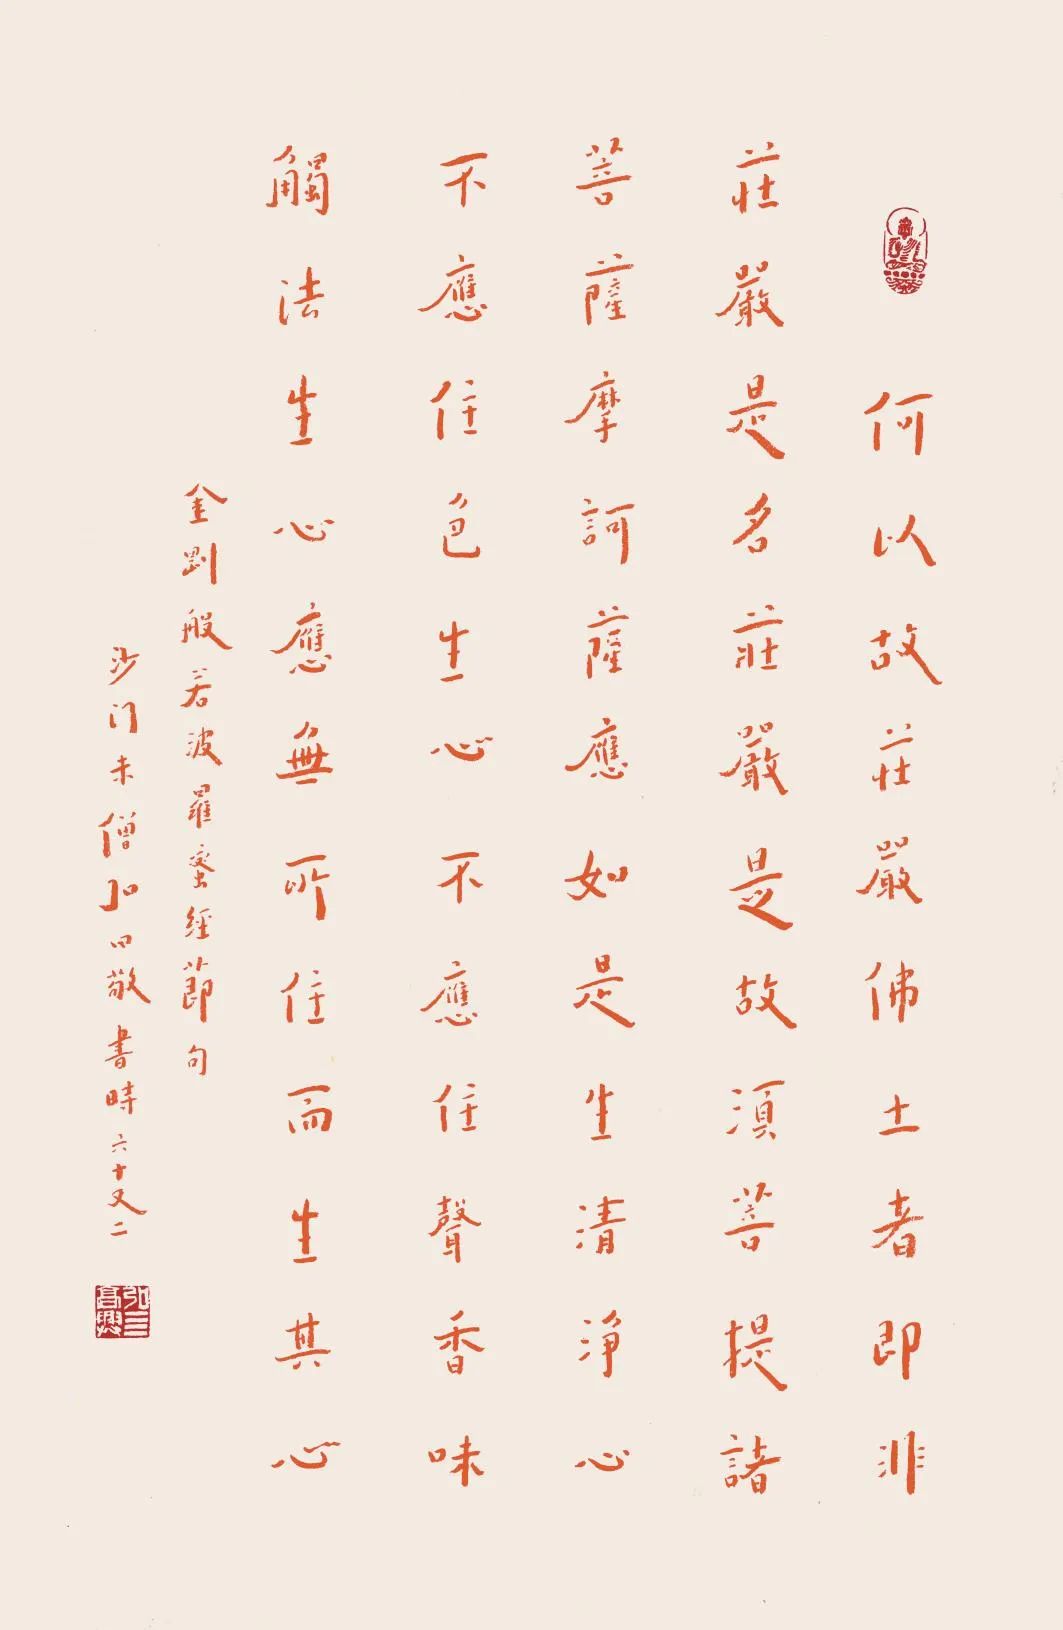 何以故莊嚴佛土者即非
莊嚴是名莊嚴是故須菩提諸
菩薩摩訶薩應如是生清淨心
不應住色生心不應住聲香味
觸法生心應無所住而生其心
金剛般若波羅蜜經節句
沙门末僧弘敬書時六十又二